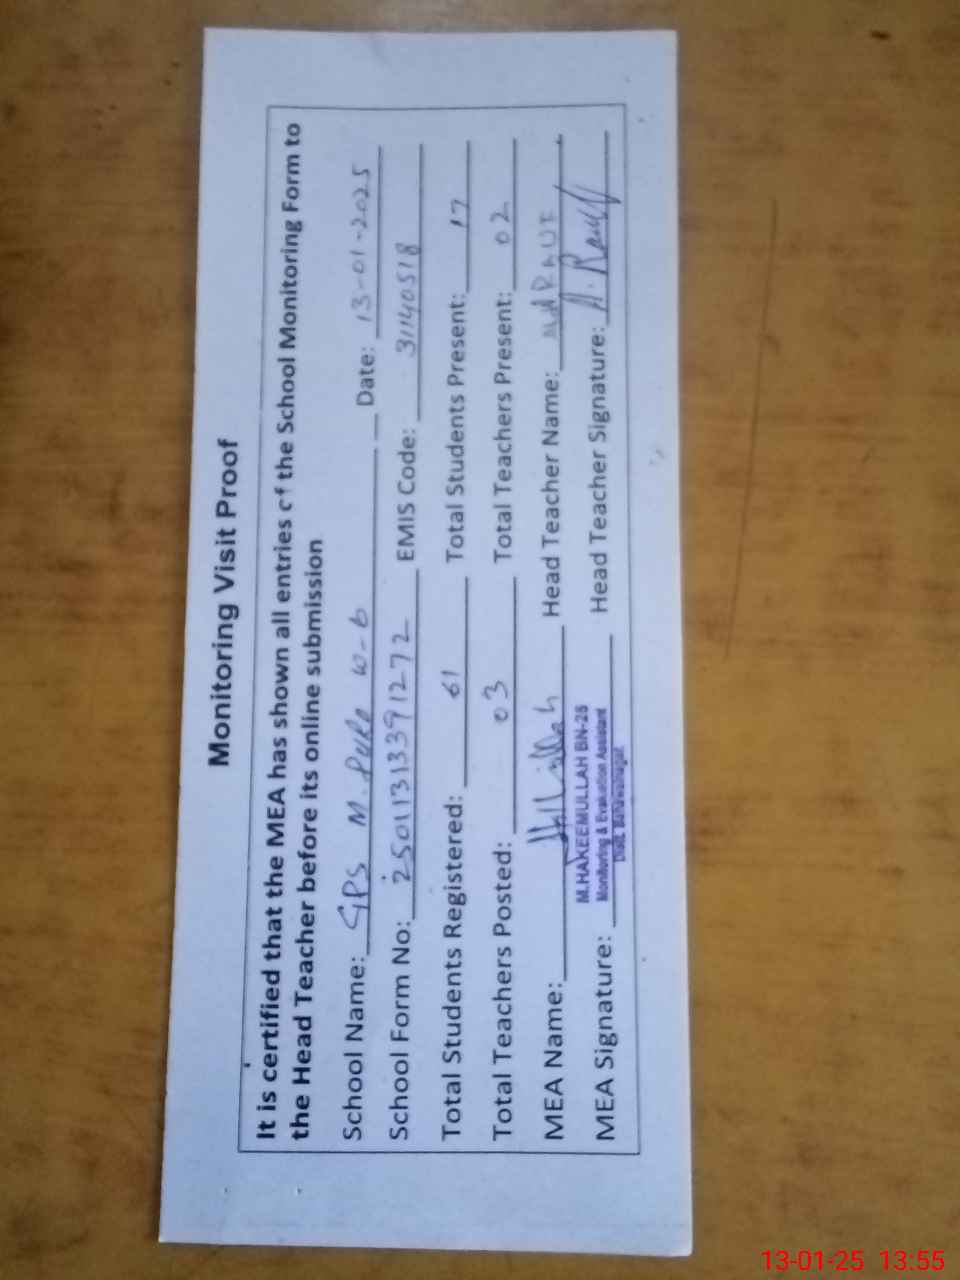 Monitoring Visit Proof
It is certified that the MEA has shown all entries of the School Monitoring Form to
the Head Teacher before its online submission
School Name: GPS M. PURA W-6 Date: 13-01-2025
School Form No: 25011313391272 EMIS Code: 31140518
Total Students Registered: 61 Total Students Present: 17
Total Teachers Posted: 03 Total Teachers Present: 02
MEA Name: Head Teacher Name: RAUF
M.HAKEEMULLAH BN-25
MEA Signature: Monitoring & Evaluation Assistant Head Teacher Signature: A. Rauf
Distt. Bahawalnagar
13-01-25 13:55